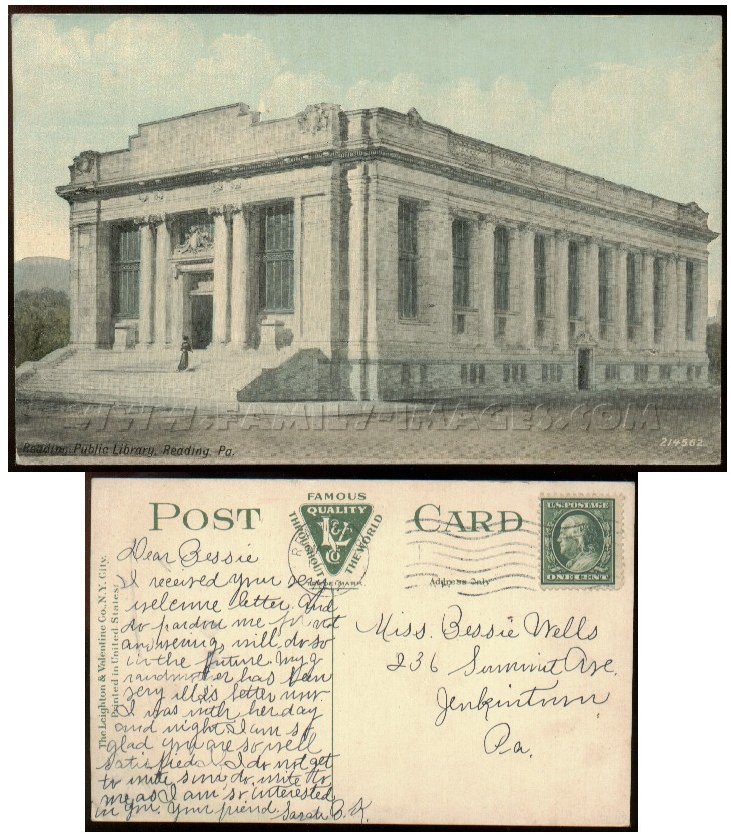 WWW.FAMILY-IMAGES.COM
Reading Public Library, Reading, Pa.
214562
POST CARD
FAMOUS
QUALITY
THROUGHOUT THE WORLD
L & V
Co
TRADE MARK
Address Only
U.S. POSTAGE
ONE CENT
The Leighton & Valentine Co., N.Y. City.
Printed in United States.
Dear Bessie
I received your very
welcome letter. And
do pardon me for not
answering, will do so
in the future. My g
randmother has been
very ill is better now
I was with her day
and night I am so
glad you are so well
satisfied. I do not get
to write, do write to
me as I am so interested
in you. Your friend Sarah B. K.
Miss. Bessie Wells
236 Summit Ave.
Jenkintown
Pa.